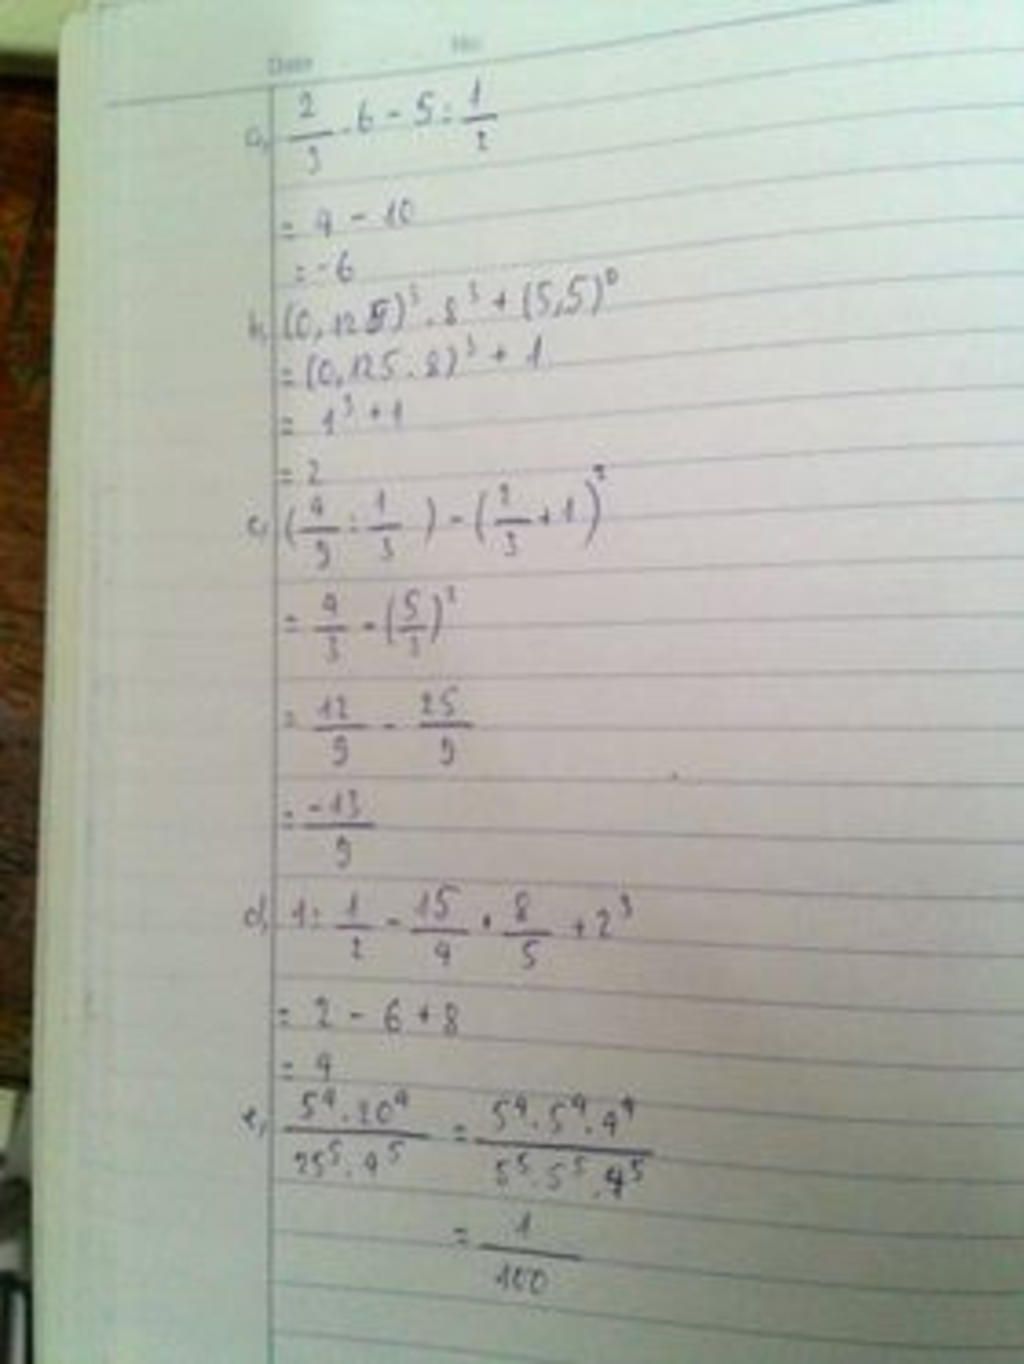 Date No.
a, 2/3 . 6 - 5 : 1/2
= 4 - 10
= -6
b, (0,125)³ . 8³ + (5,5)⁰
= (0,125 . 8)³ + 1
= 1³ + 1
= 2
c, (4/9 : 1/3) - (2/3 + 1)²
= 4/3 - (5/3)²
= 12/9 - 25/9
= -13/9
d, 1 : 1/2 - 15/4 . 8/5 + 2³
= 2 - 6 + 8
= 4
e, 5⁴ . 20⁴ / 25⁵ . 4⁵ = 5⁴ . 5⁴ . 4⁴ / 5⁵ . 5⁵ . 4⁵
= 1/100